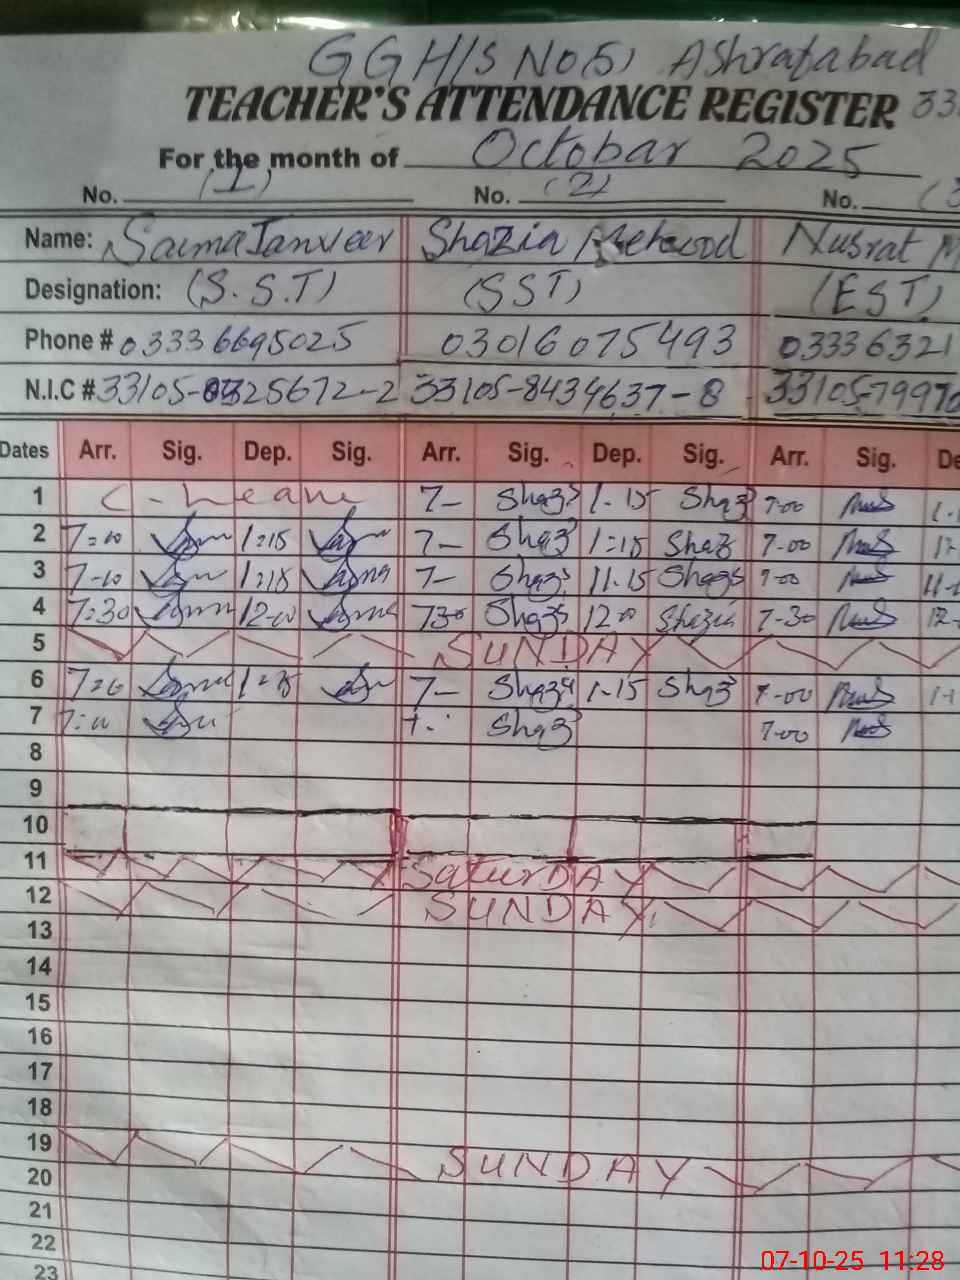 GGH/S No(5) Ashrafabad
TEACHER'S ATTENDANCE REGISTER 33
For the month of October 2025
No. (1) No. (2) No. (3
Name: Saima Tanveer Shazia Mehmood Nusrat M
Designation: (S.S.T) (SST) (EST)
Phone # 0333 6695025 03016075493 03336321
N.I.C # 33105-0325672-2 33105-8434637-8 33105-79970
Dates Arr. Sig. Dep. Sig. Arr. Sig. Dep. Sig. Arr. Sig. De
1 C-Leave 7- Shaz 1-15 Shaz 7-00
2 7:10 1:15 7- Shaz 1:15 Shaz 7-00
3 7-10 1:15 7- Shaz 11-15 Shaz 7-00
4 7:30 12-00 730 Shaz 12-00 Shazia 7-30
5 SUNDAY
6 7- Shaz 1-15 Shaz 7-00
7 Shaz 7-00
8
9
10
11 SaturDAY
12 SUNDAY
13
14
15
16
17
18
19 SUNDAY
20
21
22
23
07-10-25 11:28